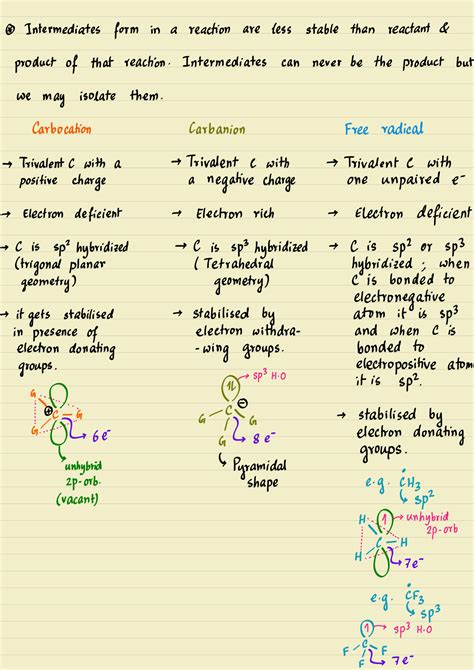 ⊛ Intermediates form in a reaction are less stable than reactant &
product of that reaction. Intermediates can never be the product but
we may isolate them.
Carbocation
→ Trivalent C with a
positive charge
→ Electron deficient
→ C is sp² hybridized
(trigonal planar
geometry)
→ it gets stabilised
in presence of
electron donating
groups.
⊕
G
C
G
G
6e⁻
unhybrid
2p-orb.
(vacant)
Carbanion
→ Trivalent C with
a negative charge
→ Electron rich
→ C is sp³ hybridized
( Tetrahedral
geometry)
→ stabilised by
electron withdra-
-wing groups.
sp³ H·O
1L
⊖
C
G
G
G
8e⁻
Pyramidal
shape
Free radical
→ Trivalent C with
one unpaired e⁻
→ Electron deficient
→ C is sp² or sp³
hybridized ; when
C is bonded to
electronegative
atom it is sp³
and when C is
bonded to
electropositive atom
it is sp².
→ stabilised by
electron donating
groups.
e.g. ĊH₃
sp²
H
1
unhybrid
2p-orb
C
H
H
7e⁻
e.g. ĊF₃
sp³
1
sp³ H·O
F
C
F
F
7e⁻